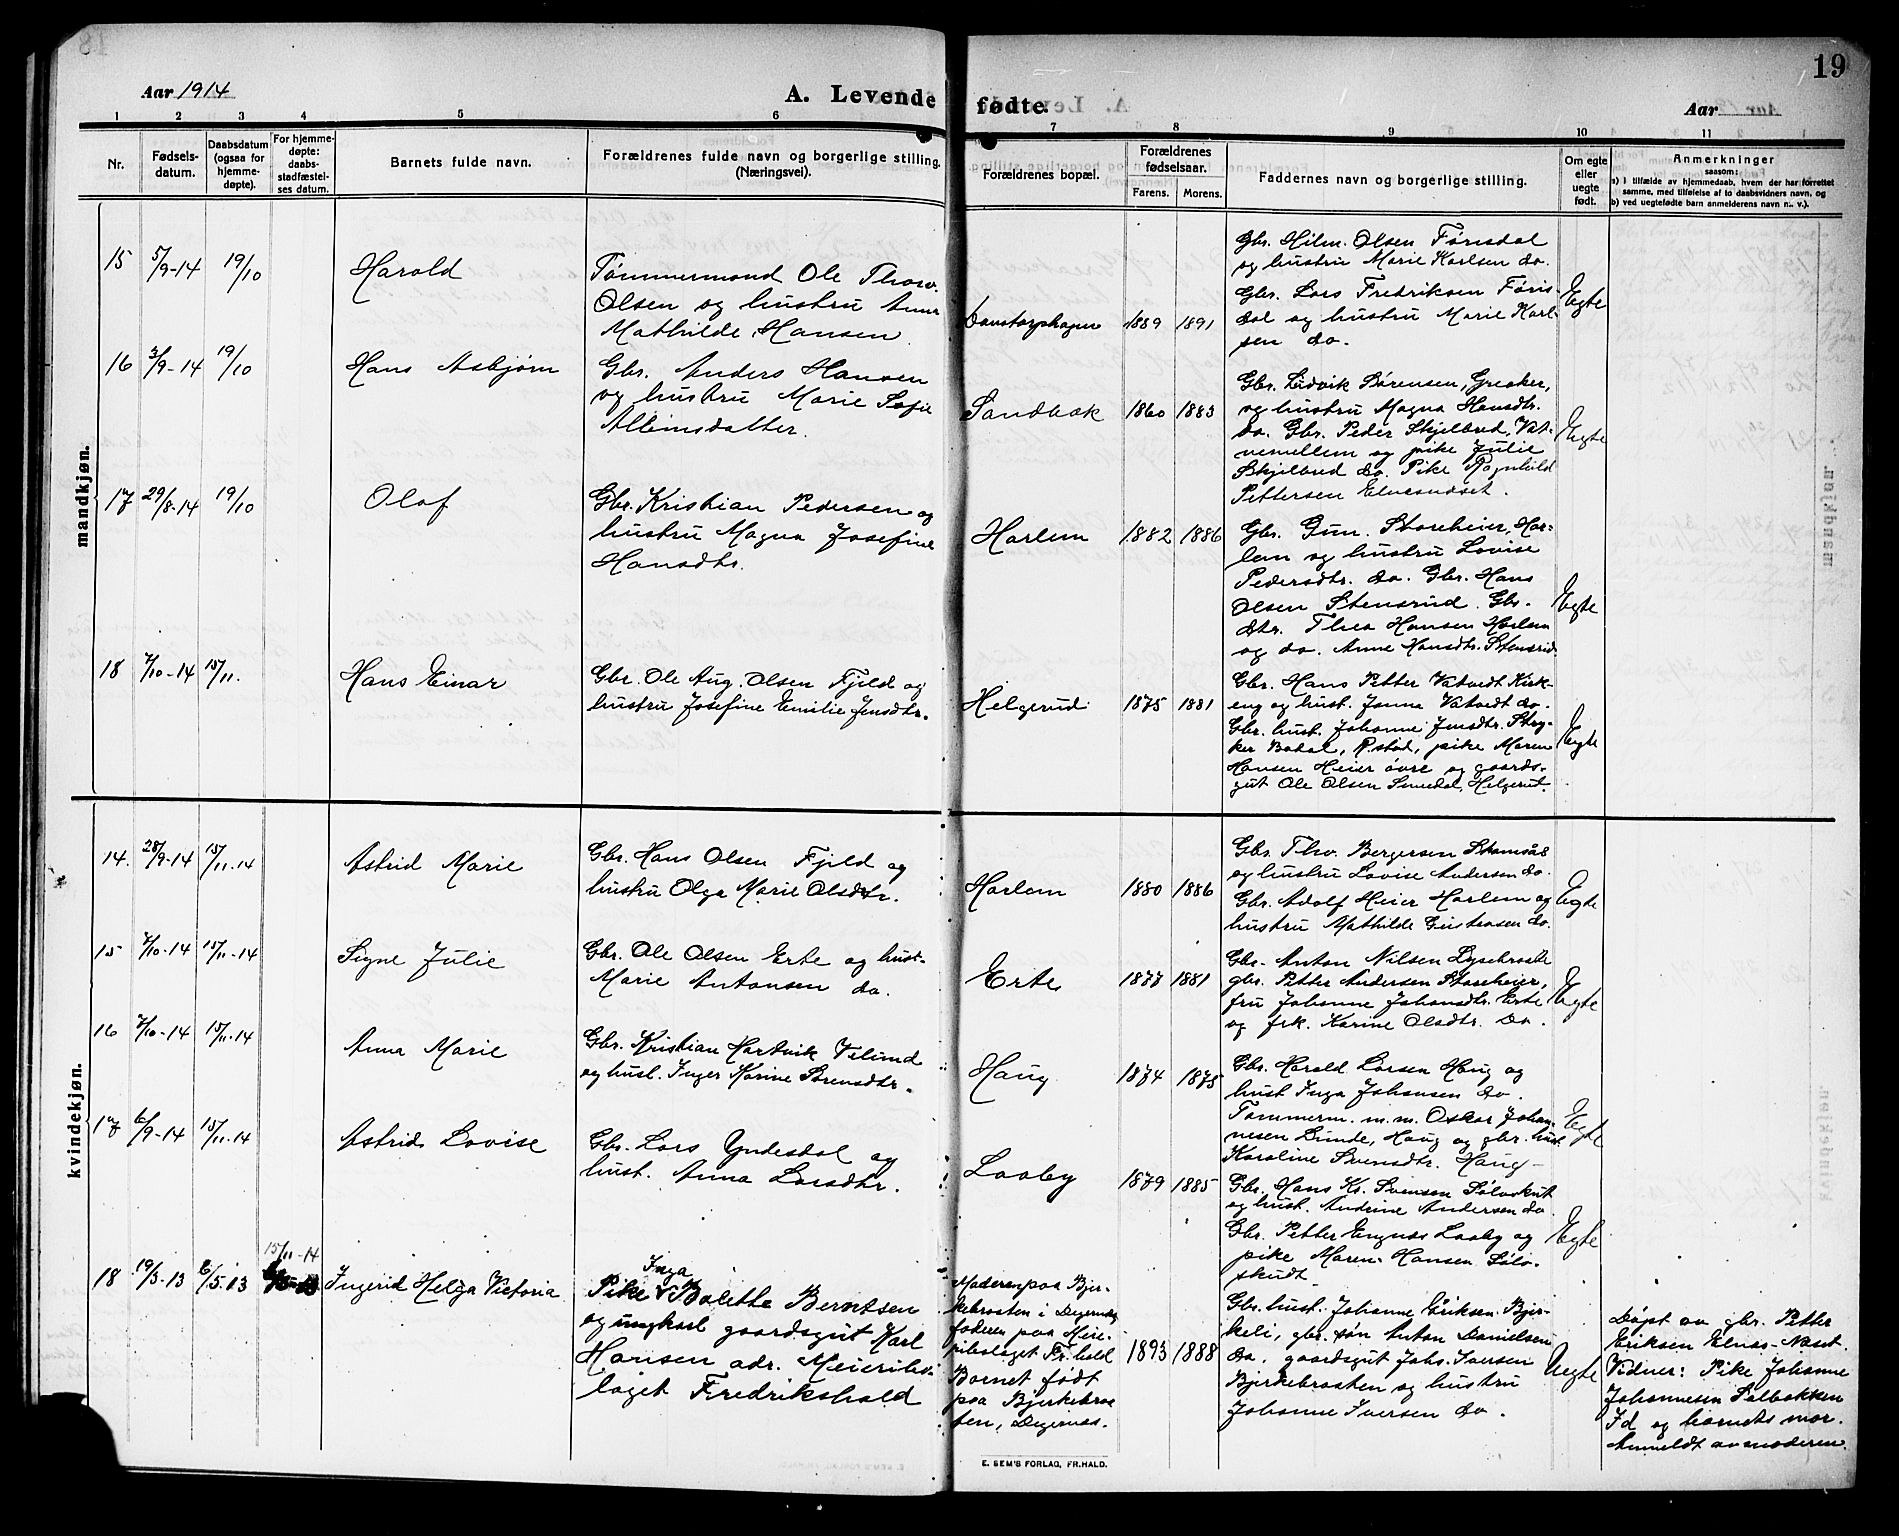 Aar 1914
A. Levende fødte.
Aar
19
1 2 3 4 5 6 7 8 9 10 11
Nr.
Fødsels-
datum.
Daabsdatum
(ogsaa for
hjemme-
døpte).
For hjemme-
døpte:
daabs-
stadfæstel-
ses datum.
Barnets fulde navn.
Forældrenes fulde navn og borgerlige stilling.
(Næringsvei).
Forældrenes bopæl.
Forældrenes
fødselsaar.
Farens. Morens.
Faddernes navn og borgerlige stilling.
Om egte
eller
uegte
født.
Anmerkninger
saasom:
a) i tilfælde av hjemmedaab, hvem der har forrettet
samme, med tilføielse af to daabsvidners navn, og
b) ved uegtefødte barn anmelderens navn n. v.).
mandkjøn.
15 5/9-14 19/10 Harold
Tømmermand Ole Thorv.
Olsen og hustru Anna
Mathilde Hansen.
1889 1891
Gbr. Hilm. Olsen Førisdal
og hustru Marie Karlsen do.
Gbr. Lars Fredriksen Føris-
dal og hustru Marie Karl-
sen do.
Egte
16 3/9-14 19/10 Hans Asbjørn
Gbr. Anders Hansen
og hustru Marie Sofie
Sandbæk 1860 1883
Gbr. Ludvik Sørensen, Greaker,
og hustru Magna Hansdtr.
do. Gbr. Peder Skjelbred, Vat-
nemellem og pike Julie
Skjelbred do. Pike Ragnhild
Pettersen Elnesnæset.
Egte
17 29/8-14 19/10 Olaf
Gbr. Kristian Pedersen og
hustru Magna Josefine
Hansdtr.
Harlem 1882 1886
Gbr. Gun. Storeheier, Har-
lem og hustru Lovise
Pedersdtr. do. Gbr. Hans
Olsen Stensrud. Gbr.
dtr. Thea Hansen Harlem
og do. Anne Hansdtr. Stensrud.
Egte
18 7/10-14 15/11. Hans Einar
Gbr. Ole Aug. Olsen Fjeld og
hustru Josefine Emilie Jensdtr.
Helgerud 1875 1881
Gbr. Hans Petter Vatvedt Kirk-
eng og hust. Janna Vatvedt do.
Gbr. hust. Johanne Jensdtr. Stry-
ker Bakal, R.stad, pike Maren
Hansen Heier øvre og gaards-
gut Ole Olsen Smedal, Helgerud.
Egte
kvindekjøn.
14. 28/9-14 15/11-14 Astrid Marie
Gbr. Hans Olsen Fjeld og
hustru Olga Marie Olsdtr.
Harlem 1880 1886
Gbr. Thv. Bergersen Stomsås
og hustru Lovise Andersen do.
Gbr. Adolf Heier Harlem og
hustru Mathilde Gustavsen do.
Egte
15 7/10-14 15/11-14 Signe Julie
Gbr. Ole Olsen Erte og hust-
Marie Antonsen do.
Erte 1877 1881
Gbr. Anton Nilsen Lysebraate
gbr. Petter Andersen Storeheier,
fru Johanne Johansdtr. Erte
og frk. Karine Olsdtr. Do.
Egte
16 7/10-14 15/11-14 Anna Marie
Gbr. Kristian Hartvik Velund
og hust. Inger Karine Sørensdtr.
Haug 1874 1875
Gbr. Harald Larsen Haug og
hust Inga Johansen do.
Tømmerm. m.m. Oskar Johan-
nesen Lunde, Haug og gbr. hust.
Karoline Svensdtr. Haug-
Egte
17 6/9-14 15/11-14 Astrid Lovise
Gbr. Lars Yndesdal og
hust. Anna Larsdtr.
Laaby 1879 1885
Gbr. Hans Kr. Svensen Sølvskut
og hust. Andrine Andersen do
Gbr. Petter Engnæs Laaby og
pike Maren Hansen Sølv-
skudt.
Egte
18 19/3-13 6/5-13 15/11-14 Ingerid Helga Victoria
Pike Inga Bolette Berntsen
og ungkarl gaardsgut Karl
Hansen adr. Meieribo-
laget Fredrikshald
Moderen paa Bjer-
kebraaten i Degernes
faderen paa Meie-
ribolaget Fr.hald
Barnet født
paa Bjerkebraa-
ten, Degernes.
1893 1888
Gbr. hust. Johanne Eriksen Bjer-
keli, gbr. søn Anton Danielsen
do. gaardsgut Johs. Iversen
Bjerkebraaten og hustru
Johanne Iversen do.
Uegte
Døpt av gbr. Petter
Eriksen Elnes-Næset.
Vidner: Pike Johanne
Johannesen Solbakken
Id og barnets mor.
Anmeldt av moderen.
E. SEM'S FORLAG, FR.HALD.